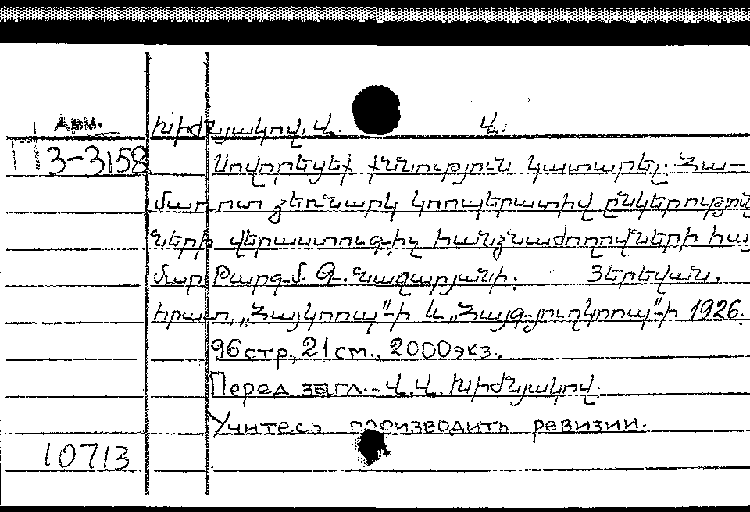 Арм. Խիժնյակով, Վ. Վ.
3-3158 Սովորեցեք քննություն կատարել: Հա-
մառոտ ձեռնարկ կոոպերատիվ ընկերություն
ների վերաստուգիչ հանձնաժողովների հա
մար Թարգմ. Գ. Նազարյանի: Յերեվան,
հրատ. „Հայկոոպ"-ի և „Հայգյուղկոոպ"-ի 1926.
96 стр, 21 см., 2000 экз.
Перед загл.- Վ. Վ. Խիժնյակով.
Учитесь производить ревизии.
10713